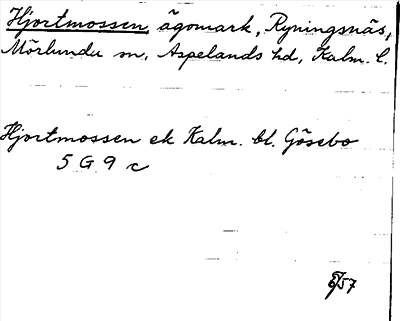 Hjortmossen, ägomark, Ryningsnäs,
Mörlunda sn, Aspelands hd, Kalm. l.
Hjortmossen ek Kalm. bl. Gösebo
5 G 9 c
57